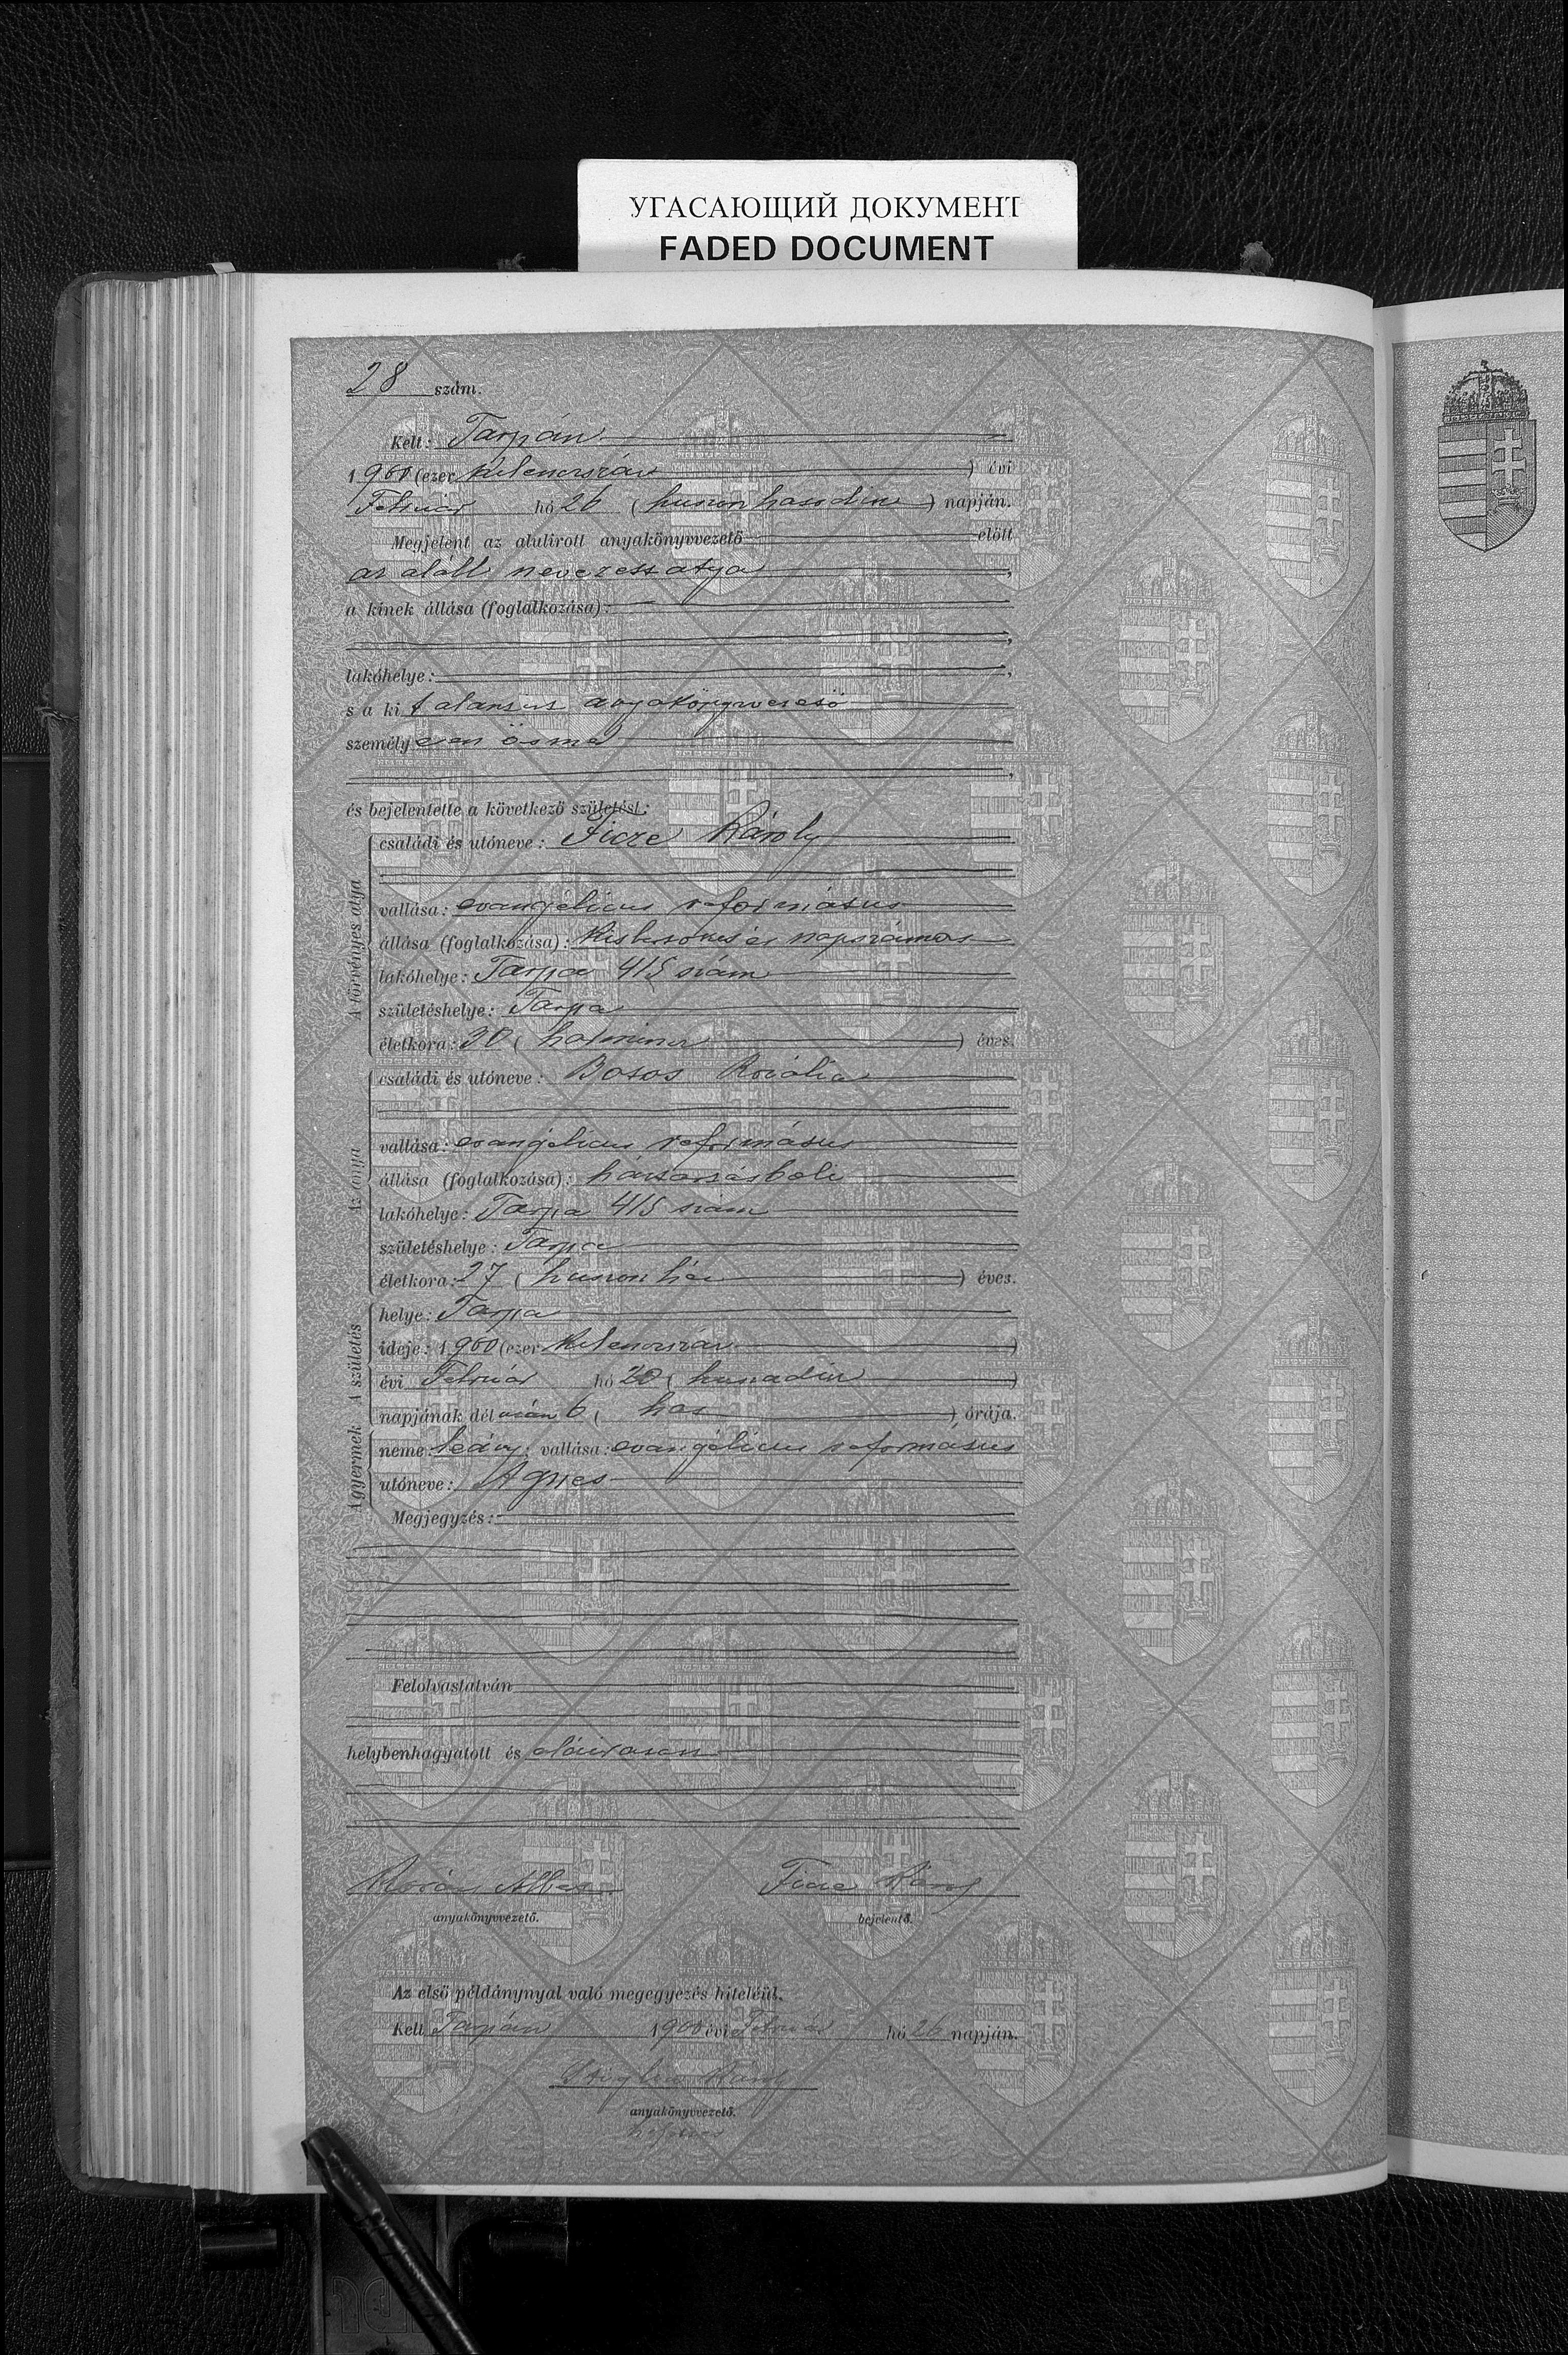 УГАСАЮЩИЙ ДОКУМЕНТ
FADED DOCUMENT
28 szám.
Kelt: Tarpán
1900 (ezer kilenczszáz ) évi
Február hó 26 (huszonhatodik) napján.
Megjelent az alulirott anyakönyvvezető előtt
az alább nevezett atya,
a kinek állása (foglalkozása):
lakóhelye:
s a ki t alantirt anyakönyvvezető
személyesen ösmer
és bejelentette a következő születést:
A törvényes atya
családi és utóneve: Ficze Károly
vallása: evangélicus református
állása (foglalkozása): kisbirtokos és napszámos
lakóhelye: Tarpa 415 szám
születéshelye: Tarpa
életkora: 30 (harmincz) éves.
Az anya
családi és utóneve: Rozália
vallása: evangélicus református
állása (foglalkozása): háztartásbeli
lakóhelye: Tarpa 415 szám
születéshelye: Tarpa
életkora: 27 (huszonhét) éves.
A születés
helye: Tarpa
ideje: 1900 (ezer kilenczszáz)
évi Február hó 20 (huszadik)
napjának délután 6 (hat) órája.
A gyermek
neme: leány; vallása: evangélicus református
utóneve: Ágnes
Megjegyzés:
Felolvastatván,
helybenhagyatott és aláiratott
Albert Ficze Károly
anyakönyvvezető. bejelentő.
Az első példánynyal való megegyezés hiteléül.
Kelt Tarpán 1900 évi Február hó 26 napján.
Károly
anyakönyvvezető.
helyettes